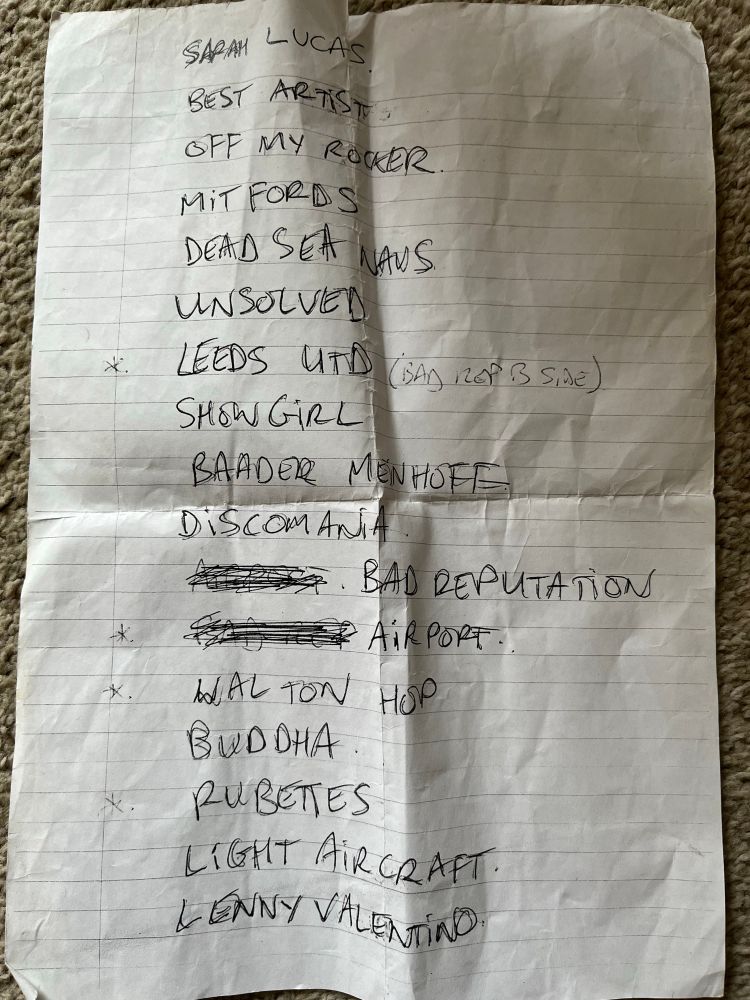 SARAH LUCAS.
BEST ARTIST.
OFF MY ROCKER.
MiTFORDS
DEAD SEA NAVS
UNSOLVED
*. LEEDS UTD (BAD REP B SIDE)
SHOWGiRL
BAADER MENHOFF
DiSCOMANiA.
. BAD REPUTATION
*. AiRPORT.
*. WALTON HOP
BUDDHA.
*. RUBETTES
LiGHT AiRCRAFT.
LENNY VALENTiNO.